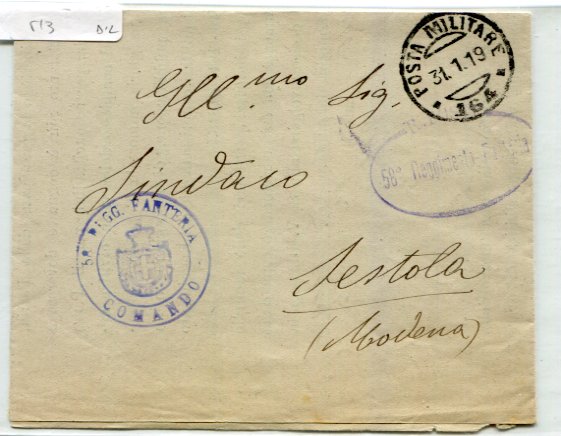 513 D.L
POSTA MILITARE
31.1.19
164
Ill.mo Sig.
58° Reggimento Fanteria
Sindaco
58 REGG. FANTERIA
COMANDO
Sestola
(Modena)